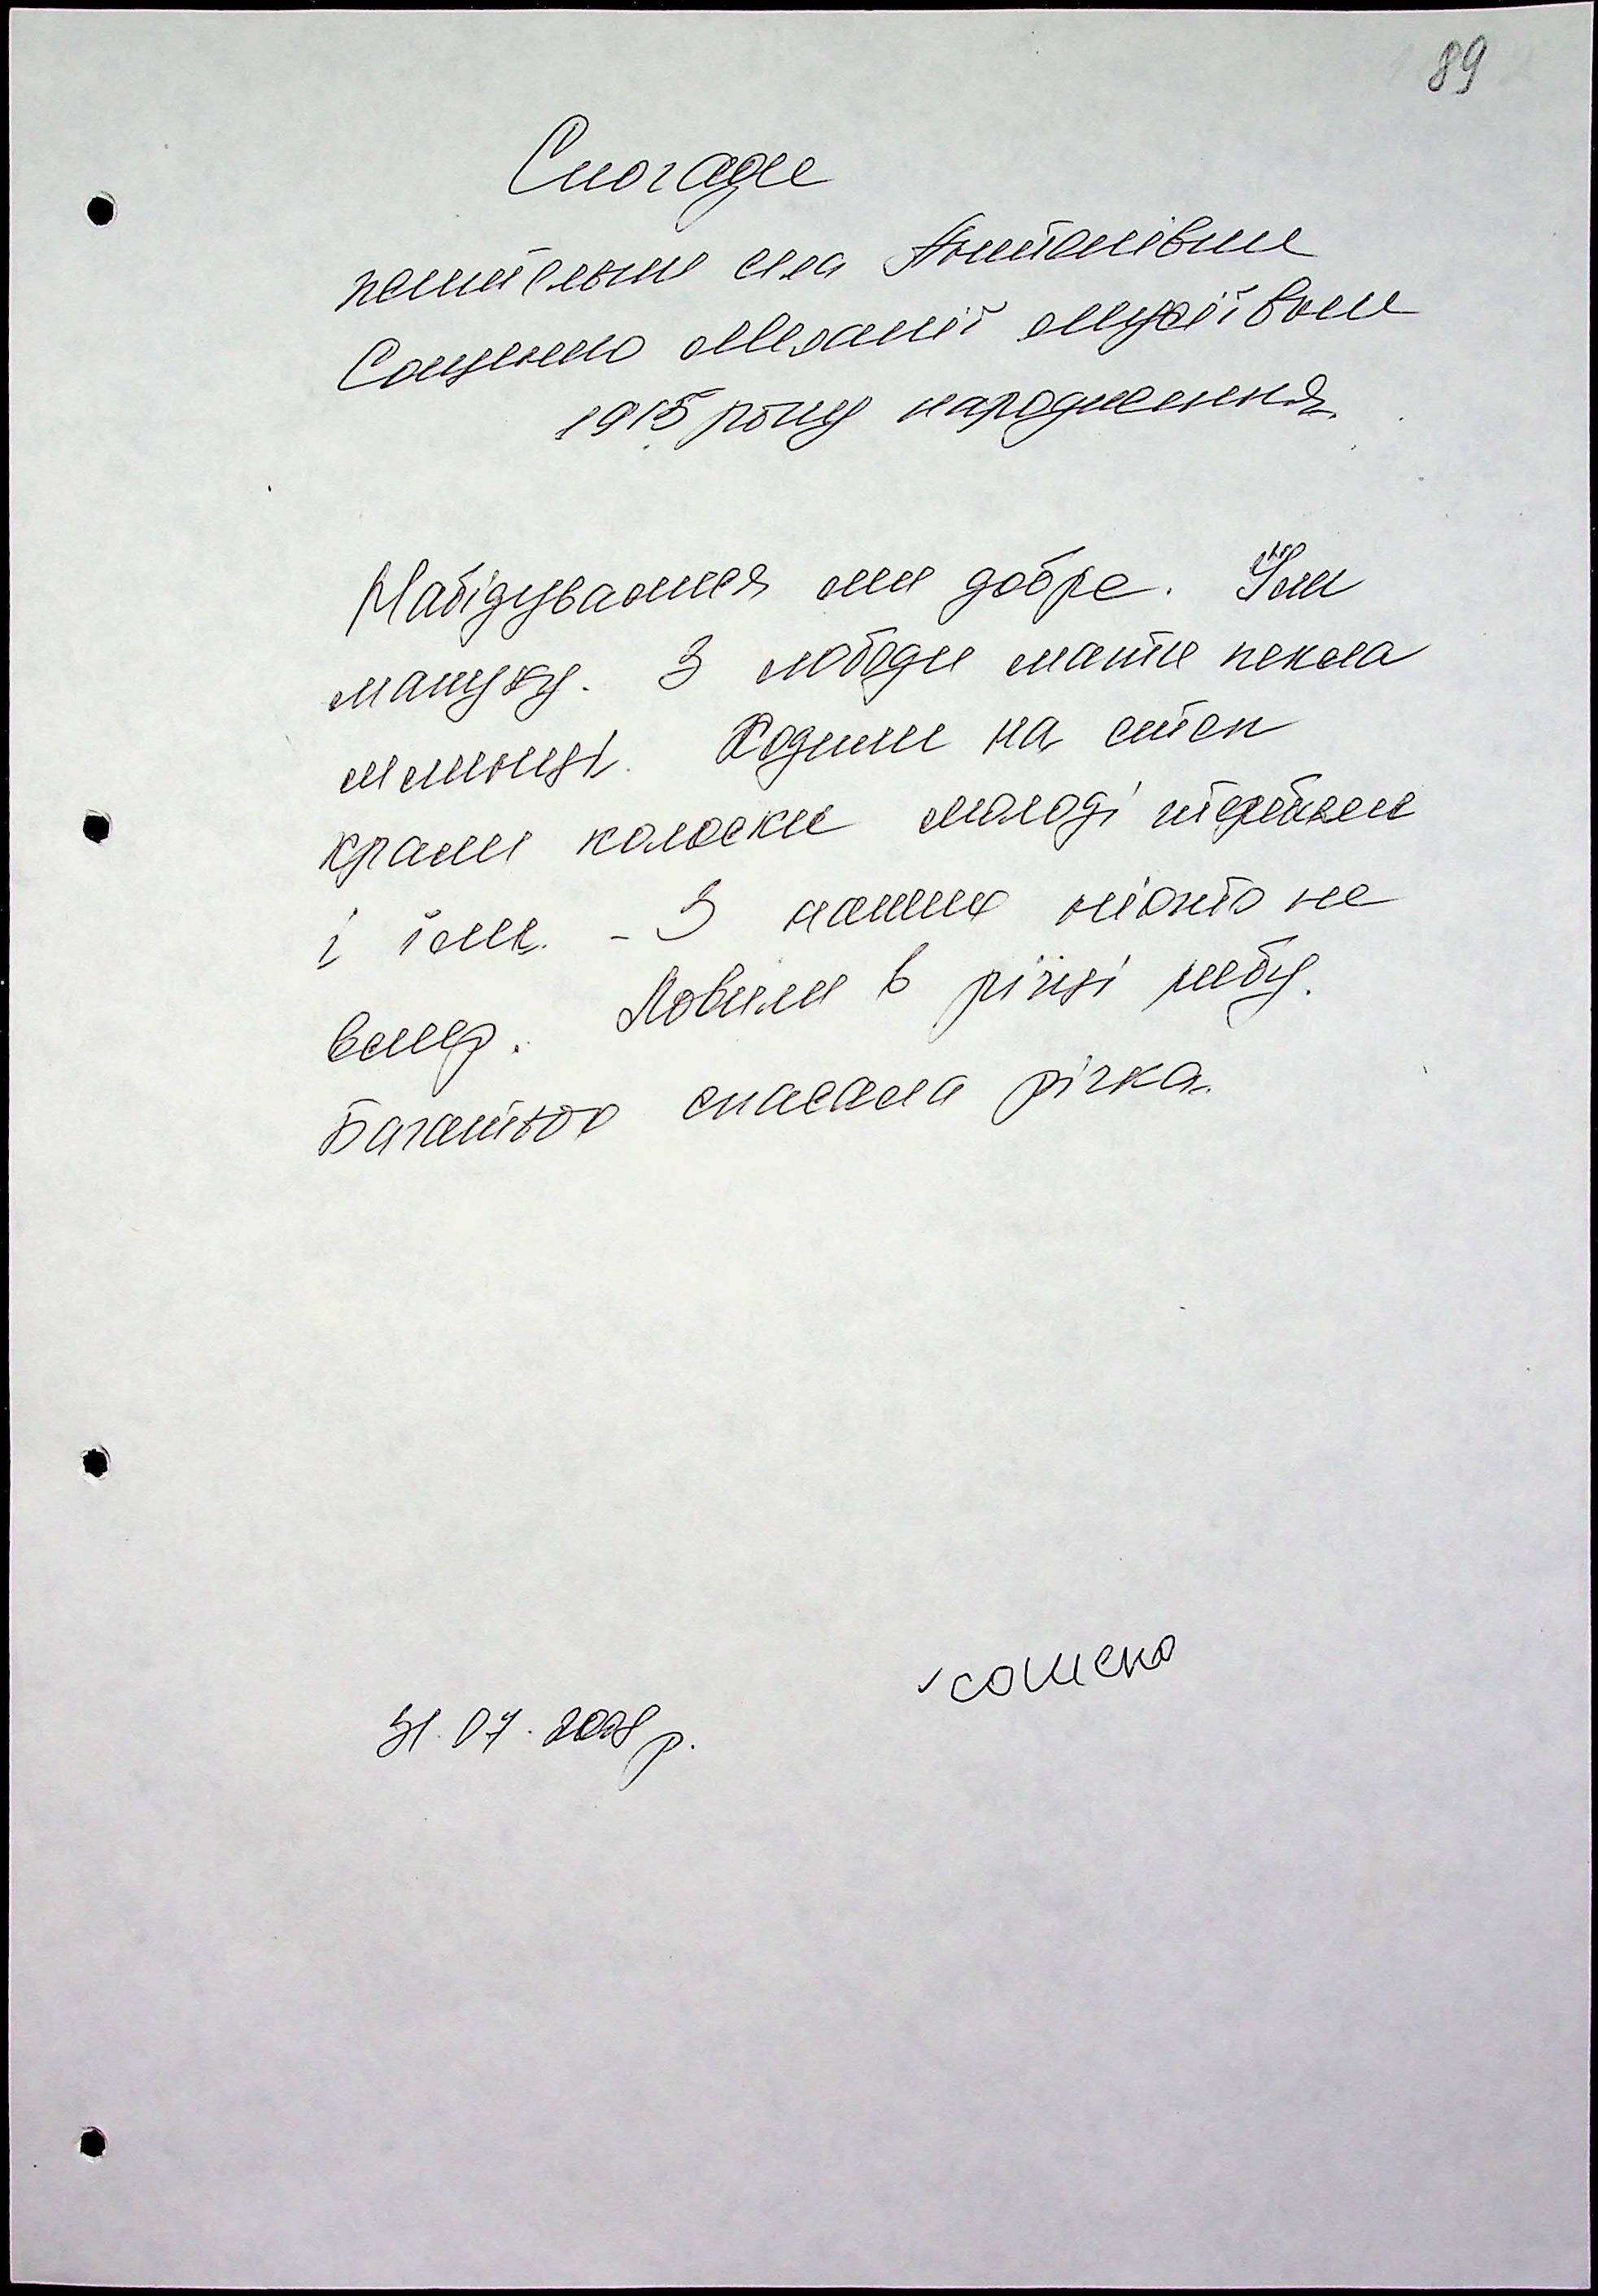 89
Спогади
жительки села Антонівки
Сощенко Меланії Мусіївни
1915 року народження.
Набідувалися ми добре. Їли
макуху. З лободи мати пекла
млинці. Ходили на степ
крали колоски молоді теребили
і їли. - З наших ніхто не
вмер. Ловили в річці рибу.
Багатьох спасала річка.
сошено
31.07.2008 р.